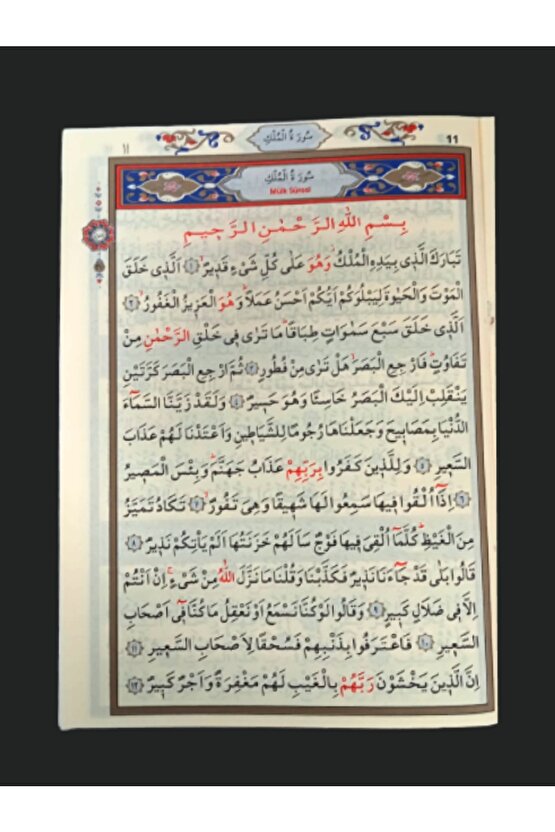 ١١ سُورَةُ الْمُلْكِ 11
سُورَةُ الْمُلْكِ
Mülk Sûresi
بِسْمِ اللّٰهِ الرَّحْمٰنِ الرَّحٖيمِ
تَبَارَكَ الَّذٖى بِيَدِهِ الْمُلْكُ وَهُوَ عَلٰى كُلِّ شَىْءٍ قَدٖيرٌۙ ﴿١﴾ اَلَّذٖى خَلَقَ
الْمَوْتَ وَالْحَيٰوةَ لِيَبْلُوَكُمْ اَيُّكُمْ اَحْسَنُ عَمَلًاؕ وَهُوَ الْعَزٖيزُ الْغَفُورُۙ ﴿٢﴾
اَلَّذٖى خَلَقَ سَبْعَ سَمٰوَاتٍ طِبَاقًاؕ مَا تَرٰى فٖى خَلْقِ الرَّحْمٰنِ مِنْ
تَفَاوُتٍؕ فَارْجِعِ الْبَصَرَۙ هَلْ تَرٰى مِنْ فُطُورٍ ﴿٣﴾ ثُمَّ ارْجِعِ الْبَصَرَ كَرَّتَيْنِ
يَنْقَلِبْ اِلَيْكَ الْبَصَرُ خَاسِئًا وَهُوَ حَسٖيرٌ ﴿٤﴾ وَلَقَدْ زَيَّنَّا السَّمَٓاءَ
الدُّنْيَا بِمَصَابٖيحَ وَجَعَلْنَاهَا رُجُومًا لِلشَّيَاطٖينِ وَاَعْتَدْنَا لَهُمْ عَذَابَ
السَّعٖيرِ ﴿٥﴾ وَلِلَّذٖينَ كَفَرُوا بِرَبِّهِمْ عَذَابُ جَهَنَّمَؕ وَبِئْسَ الْمَصٖيرُ
﴿٦﴾ اِذَٓا اُلْقُوا فٖيهَا سَمِعُوا لَهَا شَهٖيقًا وَهِىَ تَفُورُۙ ﴿٧﴾ تَكَادُ تَمَيَّزُ
مِنَ الْغَيْظِؕ كُلَّمَٓا اُلْقِىَ فٖيهَا فَوْجٌ سَاَلَهُمْ خَزَنَتُهَٓا اَلَمْ يَاْتِكُمْ نَذٖيرٌ ﴿٨﴾
قَالُوا بَلٰى قَدْ جَٓاءَنَا نَذٖيرٌ فَكَذَّبْنَا وَقُلْنَا مَا نَزَّلَ اللّٰهُ مِنْ شَىْءٍۚ اِنْ اَنْتُمْ
اِلَّا فٖى ضَلَالٍ كَبٖيرٍ ﴿٩﴾ وَقَالُوا لَوْ كُنَّا نَسْمَعُ اَوْ نَعْقِلُ مَا كُنَّا فٖٓى اَصْحَابِ
السَّعٖيرِ ﴿١٠﴾ فَاعْتَرَفُوا بِذَنْبِهِمْۚ فَسُحْقًا لِاَصْحَابِ السَّعٖيرِ ﴿١١﴾
اِنَّ الَّذٖينَ يَخْشَوْنَ رَبَّهُمْ بِالْغَيْبِ لَهُمْ مَغْفِرَةٌ وَاَجْرٌ كَبٖيرٌ ﴿١٢﴾